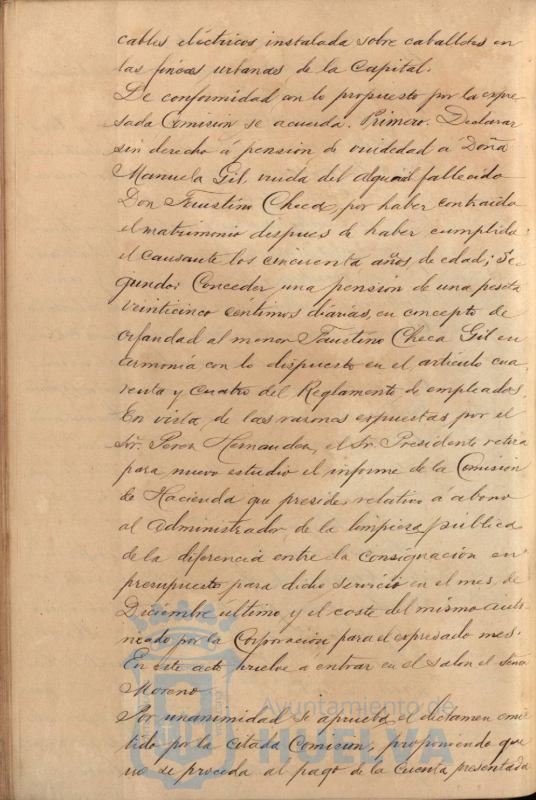 cables eléctricos instalada sobre caballetes en
las fincas urbanas de la Capital.
De conformidad con lo propuesto por la expre
sada Comisión se acuerda. Primero. Declarar
sin derecho á pensión de viudedad a Doña
Manuela Gil, viuda del alguacil fallecido
Don Faustino Checa, por haber contraido
el matrimonio despues de haber cumplido
el causante los cincuenta años de edad; Se
gundo: Conceder una pensión de una peseta
veinticinco céntimos diarias, en concepto de
orfandad al menor Faustino Checa Gil en
armonía con lo dispuesto en el artículo cua
renta y cuatro del Reglamento de empleados.
En vista de las razones expuestas por el
Sr. Perez Hernandez, el Sr. Presidente retira
para nuevo estudio el informe de la Comisión
de Hacienda que preside, relativo á abono
al Administrador de la limpieza pública
de la diferencia entre la consignación en
presupuesto para dicho servicio en el mes de
Diciembre último y el coste del mismo auto
rizado por la Corporación para el expresado mes.
En este acto vuelve a entrar en el salon el Señor
Moreno
Por unanimidad se aprueba el dictamen emi
tido por la citada Comisión, proponiendo que
no se proceda al pago de la cuenta presentada
Ayuntamiento de
HUELVA